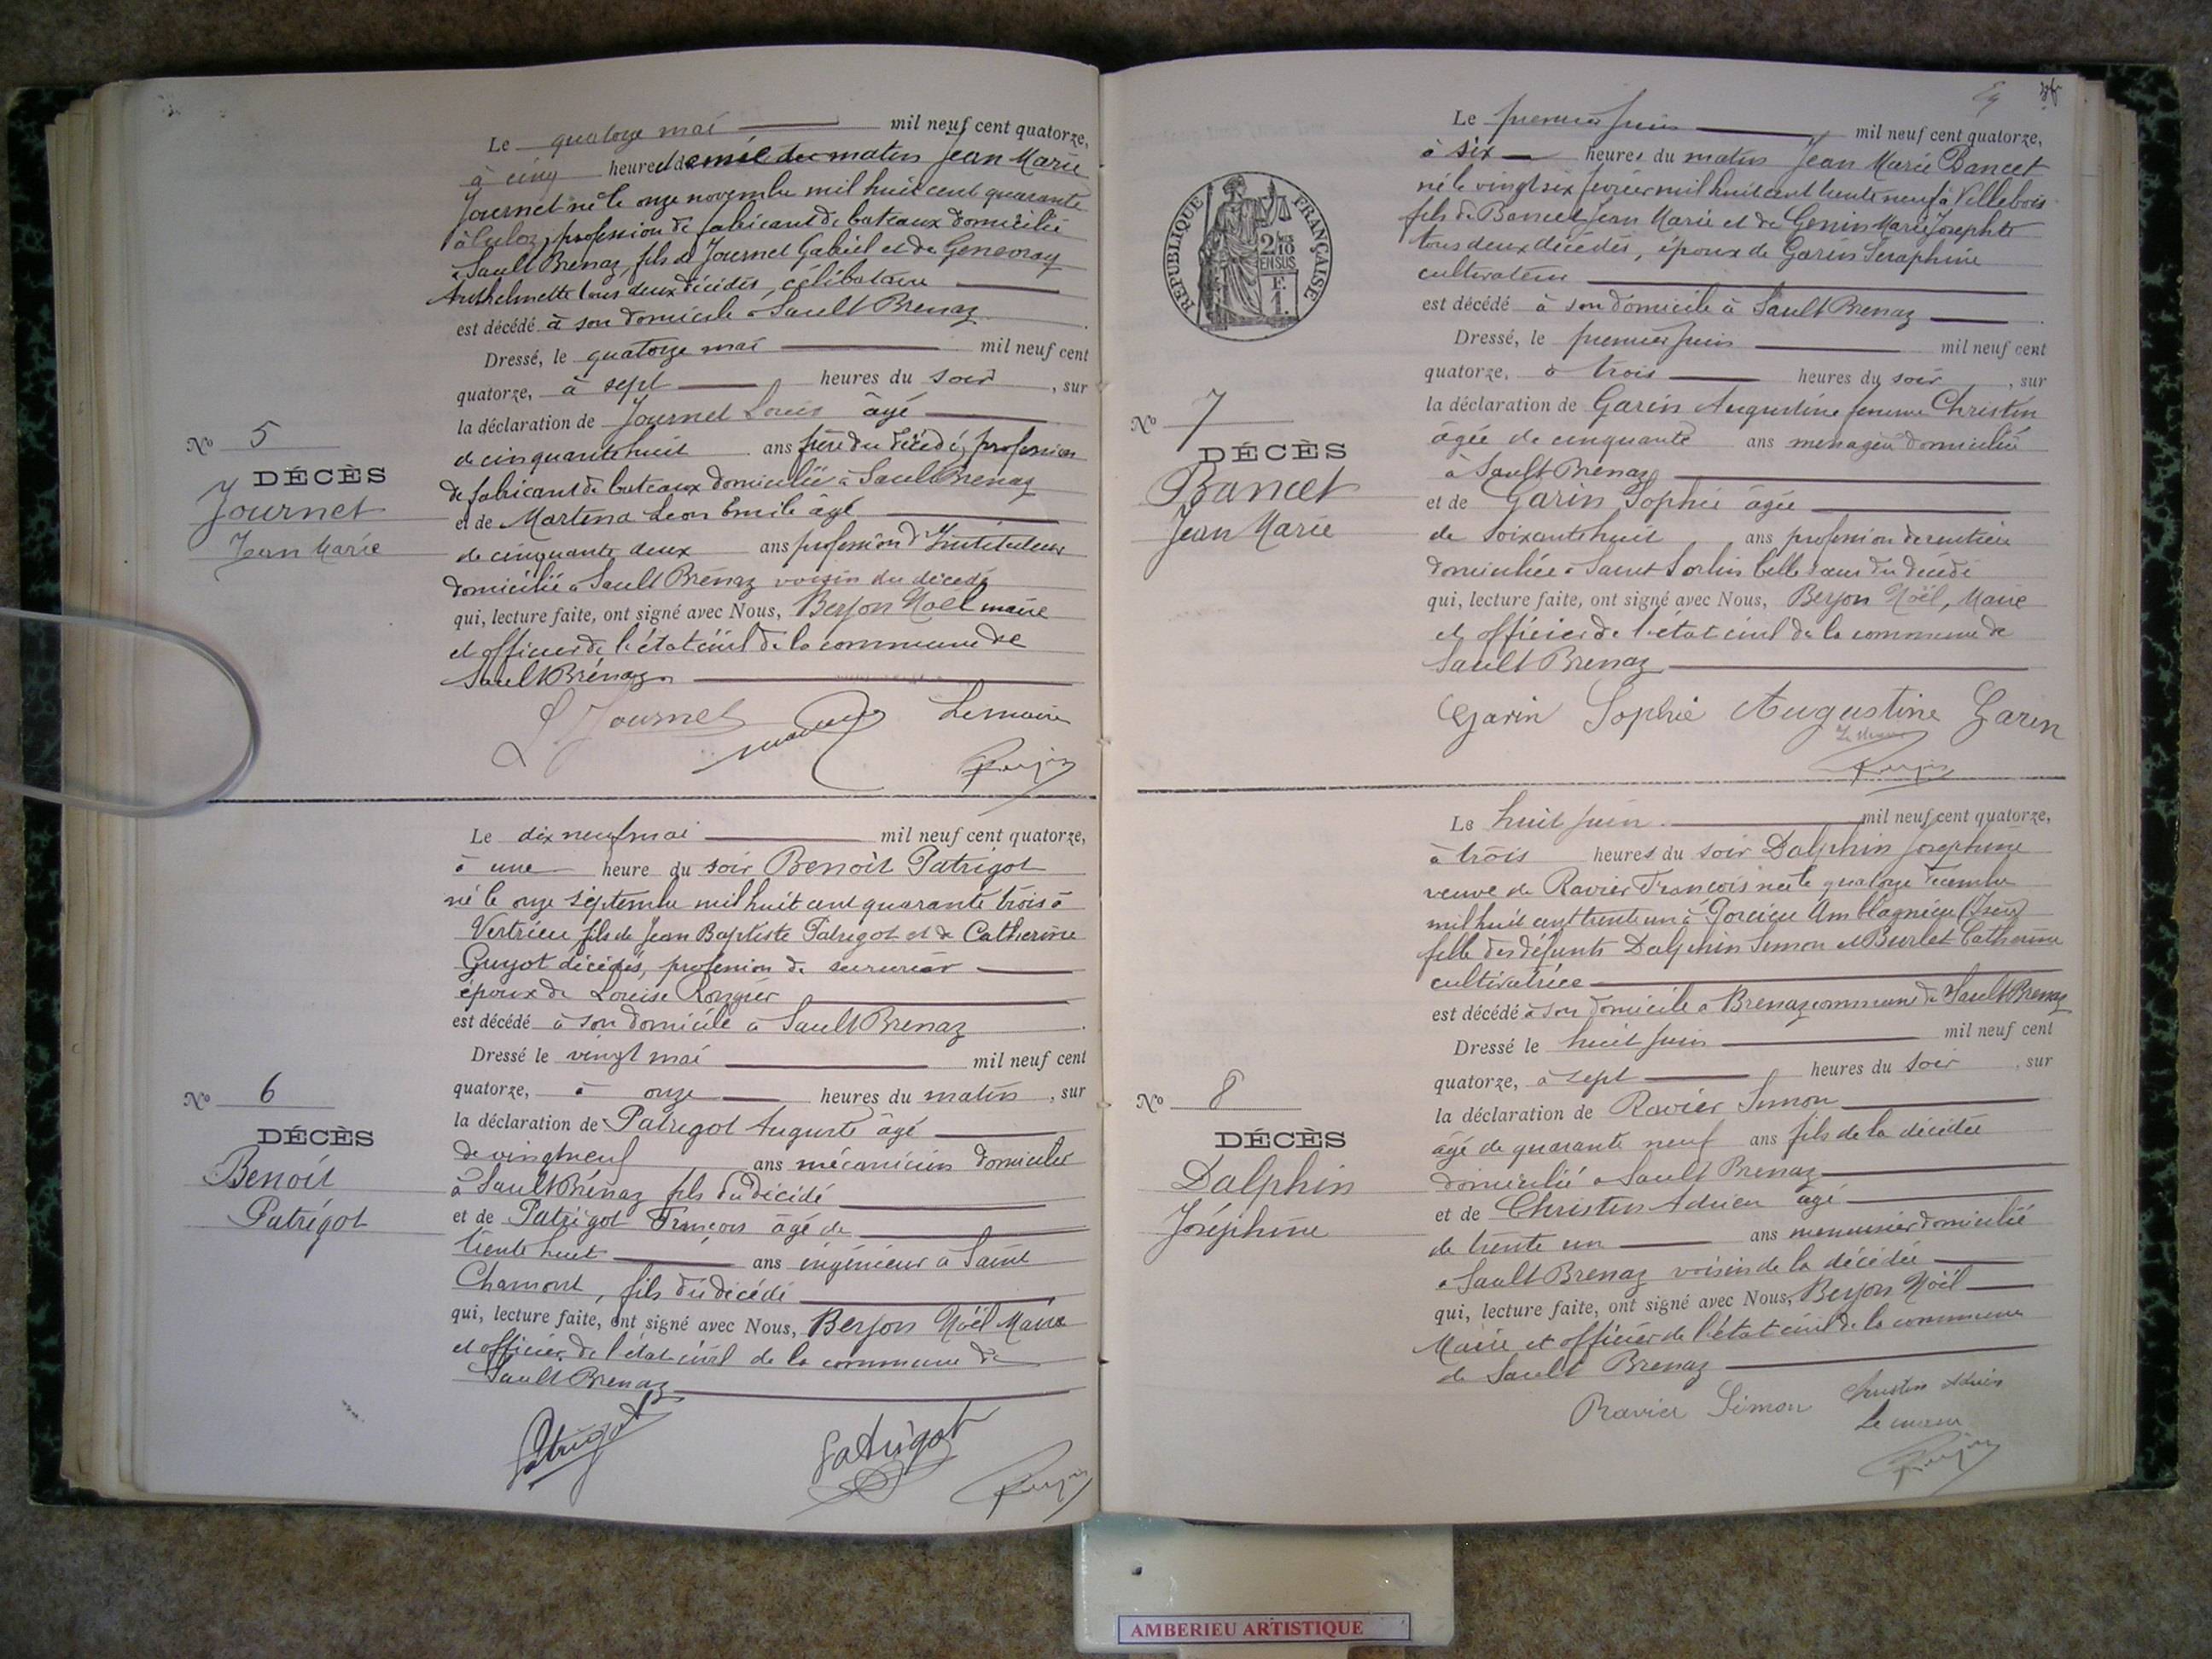 Le quatorze mai mil neuf cent quatorze,
à cinq heures et demie du matin Jean Marie
Journet né le onze novembre mil huit cent quarante
à Culoz, profession de fabricant de bateaux domicilié
à Sault Brenaz, fils de Journet Gabriel et de Genevray
Anthelmette tous deux décédés, célibataire
est décédé à son domicile à Sault Brenaz
Dressé, le quatorze mai mil neuf cent
quatorze, à sept heures du soir, sur
la déclaration de Journet Louis âgé
de cinquante huit ans frère du décédé, profession
de fabricant de bateaux domicilié à Sault Brenaz
et de Martena Leon Emile âgé
de cinquante deux ans profession d'Instituteur
domicilié à Sault Brénaz voisin du décédé
qui, lecture faite, ont signé avec Nous, Berjon Noël maire
et officier de l'état civil de la commune de
Sault Brénaz
L Journet
Le maire
Berjon
No 5
DÉCÈS
Journet
Jean Marie
Le dix neuf mai mil neuf cent quatorze,
à une heure du soir Benoît Patrigot
né le onze septembre mil huit cent quarante trois à
Vertrieu fils de Jean Baptiste Patrigot et de Catherine
Guyot décédés, profession de serrurier
époux de Louise Rongier
est décédé à son domicile à Sault Brenaz
Dressé le vingt mai mil neuf cent
quatorze, à onze heures du matin, sur
la déclaration de Patrigot Auguste âgé
de vingt neuf ans mécanicien domicilié
à Sault Brénaz fils du décédé
et de Patrigot François âgé de
trente huit ans ingénieur à Saint
Chamont, fils du décédé
qui, lecture faite, ont signé avec Nous, Berjon Noël Maire
et officier de l'état civil de la commune de
Sault Brenaz
Patrigot
Patrigot
Berjon
No 6
DÉCÈS
Benoit
Patrigot
Le premier juin mil neuf cent quatorze,
à six heures du matin Jean Marie Bancet
né le vingt six février mil huit cent trente neuf à Villebois
fils de Bancet Jean Marie et de Genin Marie Josephte
tous deux décédés, époux de Garin Séraphine
cultivateur
est décédé à son domicile à Sault Brenaz
Dressé, le premier juin mil neuf cent
quatorze, à trois heures du soir, sur
la déclaration de Garin Augustine femme Christin
âgée de cinquante ans menagère domiciliée
à Sault Brenaz
et de Garin Sophie âgée
de soixante huit ans profession de rentière
domiciliée à Saint Sorlin belle sœur du décédé
qui, lecture faite, ont signé avec Nous, Berjon Noël, Maire
et officier de l'état civil de la commune de
Sault Brenaz
Garin Sophie Augustine Garin
Le Maire
Berjon
RÉPUBLIQUE FRANÇAISE
2/10
EN SUS
F.
1.
No 7
DÉCÈS
Bancet
Jean Marie
Le huit juin mil neuf cent quatorze,
à trois heures du soir Dalphin Joséphine
veuve de Ravier François née le quatorze decembre
mil huit cent trente un à Porcieu Amblagnieu (Isère)
fille des défunts Dalphin Simon et Burlet Catherine
cultivatrice
est décédé à son domicile à Brenaz commune de Sault Brenaz
Dressé le huit juin mil neuf cent
quatorze, à sept heures du soir, sur
la déclaration de Ravier Simon
âgé de quarante neuf ans fils de la décédée
domicilié à Sault Brenaz
et de Christin Adrien âgé
de trente un ans menuisier domicilié
à Sault Brenaz voisin de la décédée
qui, lecture faite, ont signé avec Nous, Berjon Noël
Maire et officier de l'état civil de la commune
de Sault Brenaz
Ravier Simon Christin Adrien
Le maire
Berjon
No 8
DÉCÈS
Dalphin
Joséphine
AMBERIEU ARTISTIQUE